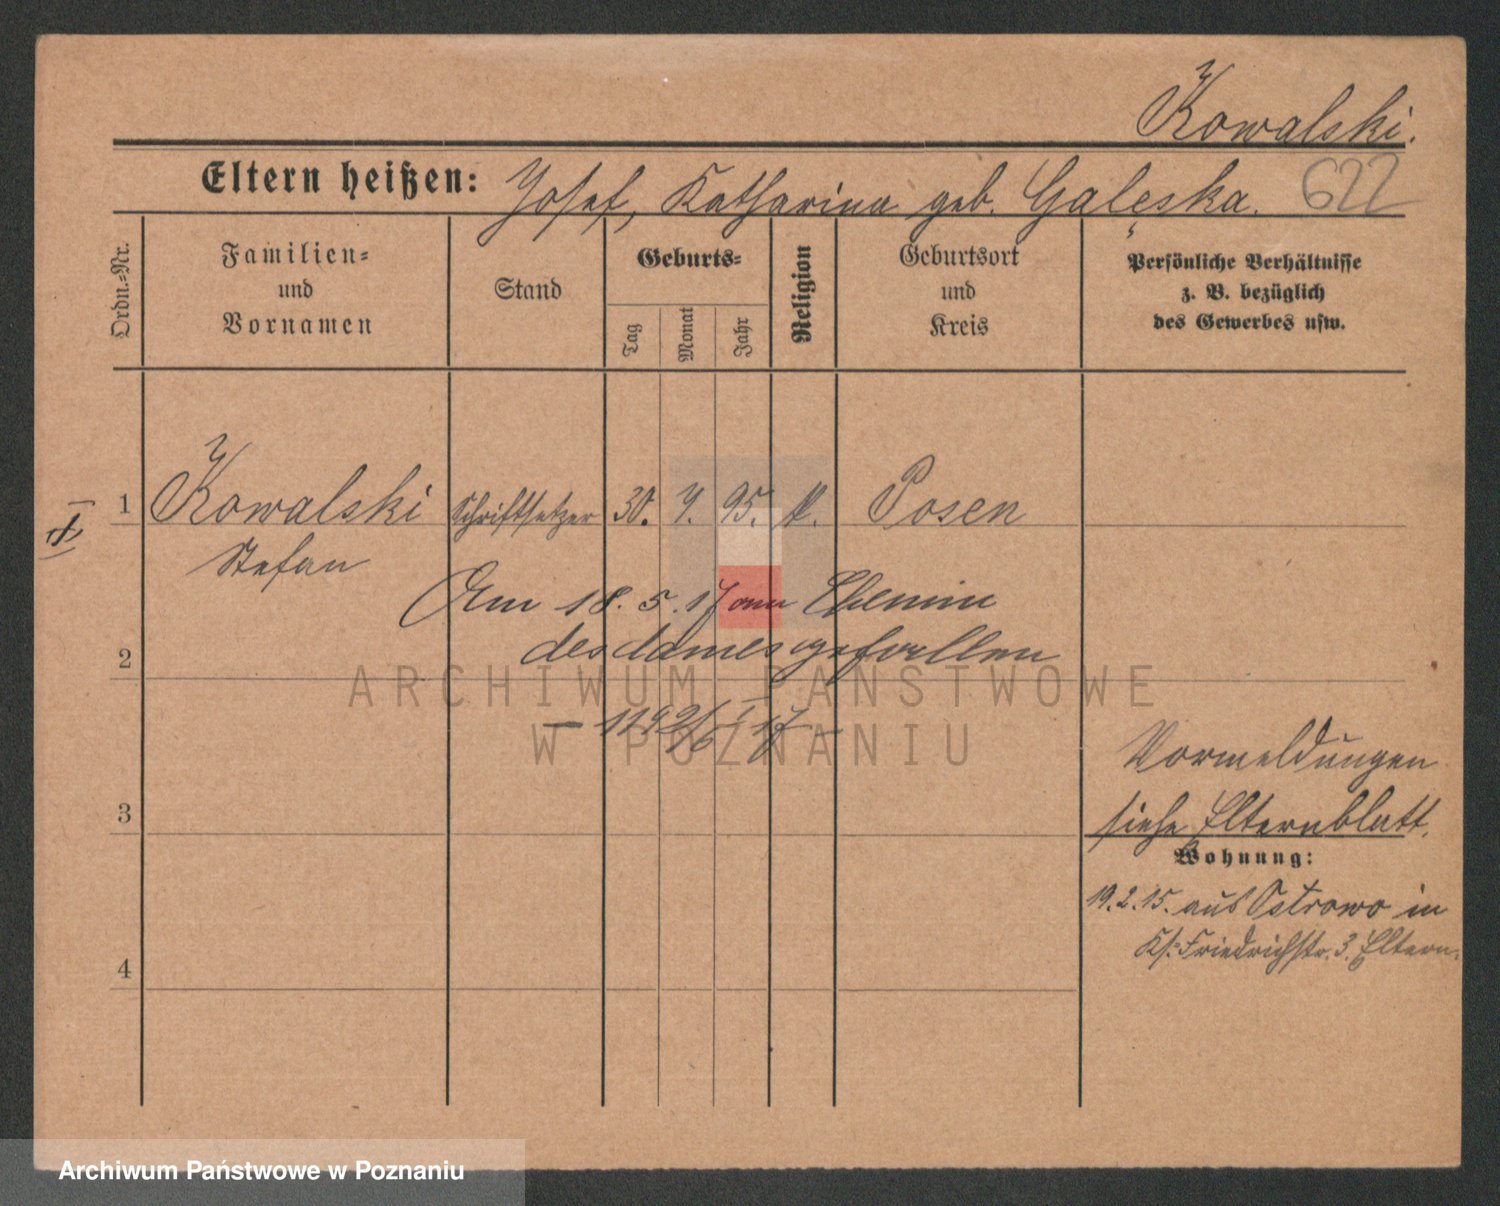 Kowalski.
Eltern heißen: Josef, Katharina geb. Gałęska. 622
Ordn.-Nr.
Familien- und Vornamen
Stand
Geburts-
Tag
Monat
Jahr
Religion
Geburtsort und Kreis
Persönliche Verhältnisse z. B. bezüglich des Gewerbes usw.
1 Kowalski Schriftsetzer 30. 7. 95. k. Posen
Stefan
Am 18. 5. 17 am Chemin
des dames gefallen
2
ARCHIWUM PAŃSTWOWE
W POZNANIU
Vormeldungen
siehe Elternblatt.
3
Wohnung:
19.2.15. aus Ostrowo in
Ks: Friedrichstr. 3. Eltern.
4
Archiwum Państwowe w Poznaniu